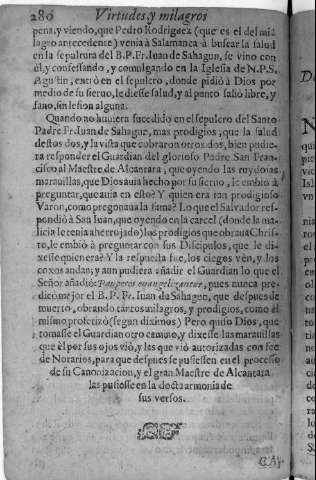 280 Virtudes, y milagros
pena, y viendo, que Pedro Rodriguez (que es el del mi-
lagro antecedente) venia à Salamanca à buscar la salud
en la sepultura del B.P.Fr. Iuan de Sahagun, se vino con
èl, y confessando, y comulgando en la Iglesia de N.P.S.
Agustin, entrò en el sepulcro, donde pidiò à Dios por
medio de su siervo, le diesse salud, y al punto saliò libre, y
sano, sin lesion alguna.
Quando no huviera sucedido en el sepulcro del Santo
Padre Fr. Iuan de Sahagun, mas prodigios, que la salud
destos dos, y la vista que cobraron otros dos, bien pudie-
ra responder el Guardian del glorioso Padre San Fran-
cisco al Maestre de Alcantara, que oyendo las ruydosas
maravillas, que Dios avia hecho por su siervo, le embiò à
preguntar, que avia en esto? Y quien era tan prodigioso
Varon, como pregonava la fama? Lo que el Salvador res-
pondiò à San Iuan, que oyendo en la carcel (donde la ma-
licia le tenia aherrojado) los prodigios que obrava Chris-
to, le embiò à preguntar con sus Discipulos, que le di-
xesse quien era? Y la respuesta fue, los ciegos vèn, y los
coxos andan; y aun pudiera añadir el Guardian lo que el
Señor añadiò: Pauperes euangelizantur, pues nunca pre-
dicò mejor el B.P.Fr. Iuan de Sahagun, que despues de
muerto, obrando tantos milagros, y prodigios, como èl
mismo profetizò (segun diximos) Pero quiso Dios, que
tomasse el Guardian otro camino, y dixesse las maravillas
que èl por sus ojos viò, y las que viò autorizadas con fee
de Notarios, para que despues se pusiessen en el processo
de su Canonizacion, y el gran Maestre de Alcantara
las pusiesse en la docta armonia de
sus versos.
CAP.